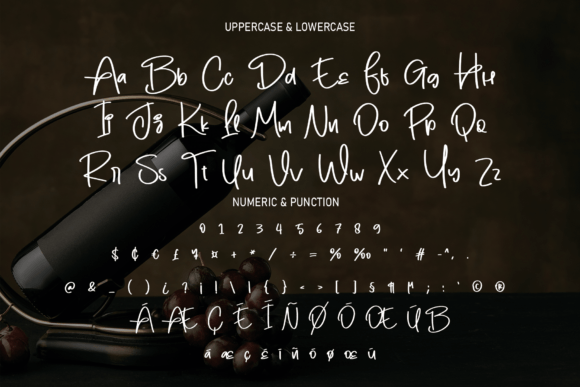 UPPERCASE & LOWERCASE
Aa Bb Cc Dd Ee Ff Gg Hh
Ii Jj Kk Ll Mm Nn Oo Pp Qq
Rr Ss Tt Uu Vv Ww Xx Yy Zz
NUMERIC & PUNCTION
0 1 2 3 4 5 6 7 8 9
$ ¢ € £ ¥ ¤ + * / ÷ = % ‰ " ' # -^, .
@ & _ ( ) ¿ ? ¡ ! \ | { } < > [ ] § ¶ µ ; : ' © ®